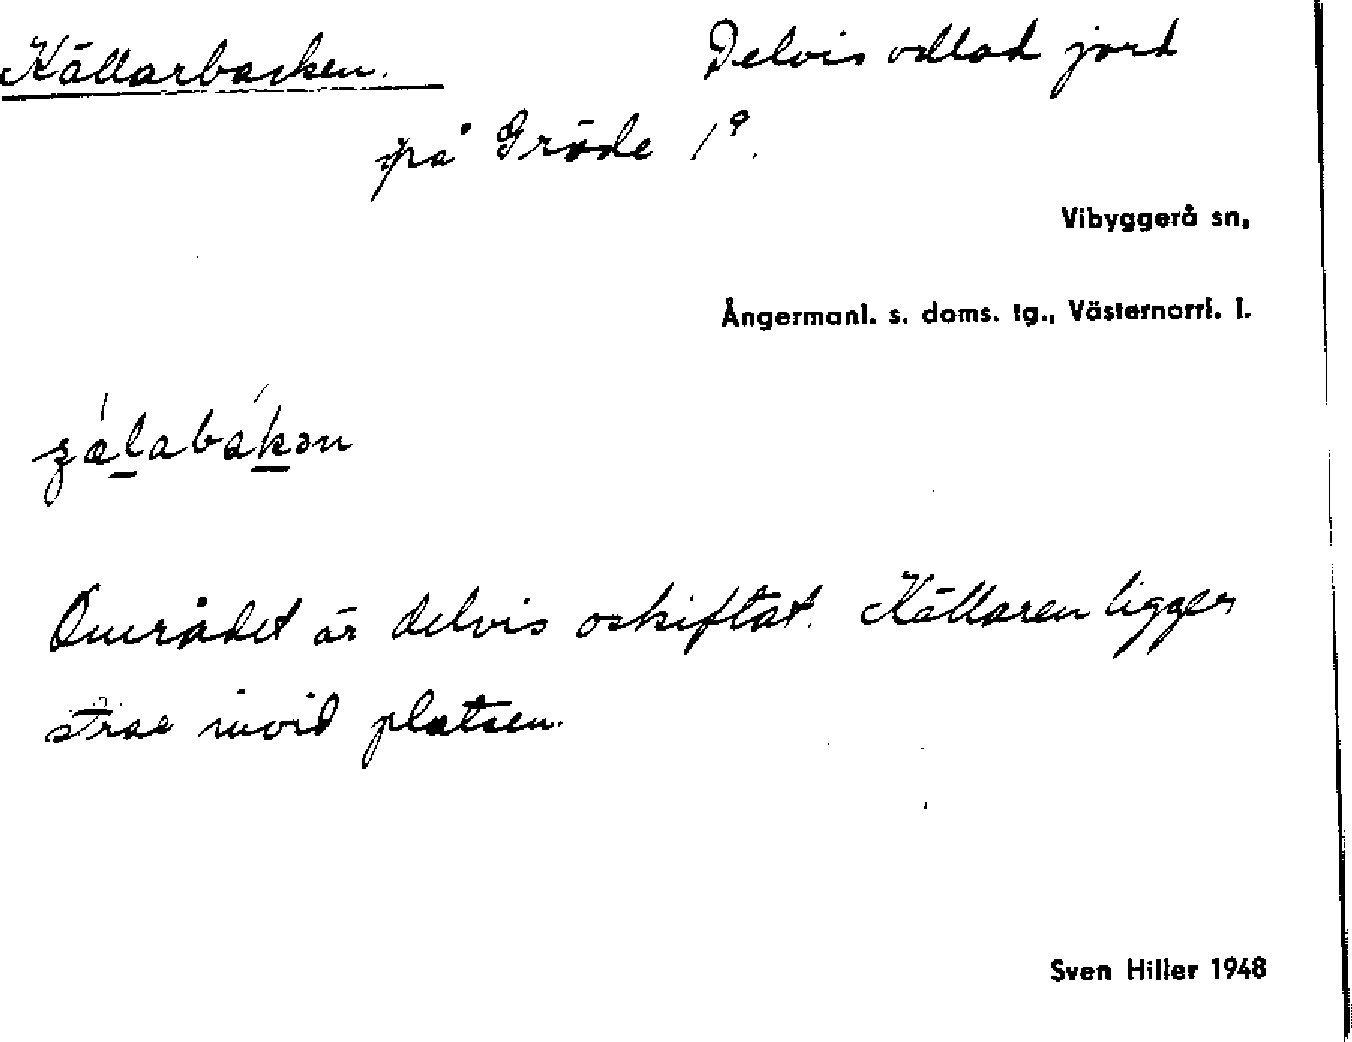 Källarbacken. Delvis odlad jord
på Gräde 1⁹.
Vibyggerå sn,
Ångermanl. s. doms. tg., Västernorrl. l.
Området är delvis oskiftat. Källaren ligger
strax invid platsen.
Sven Hiller 1948